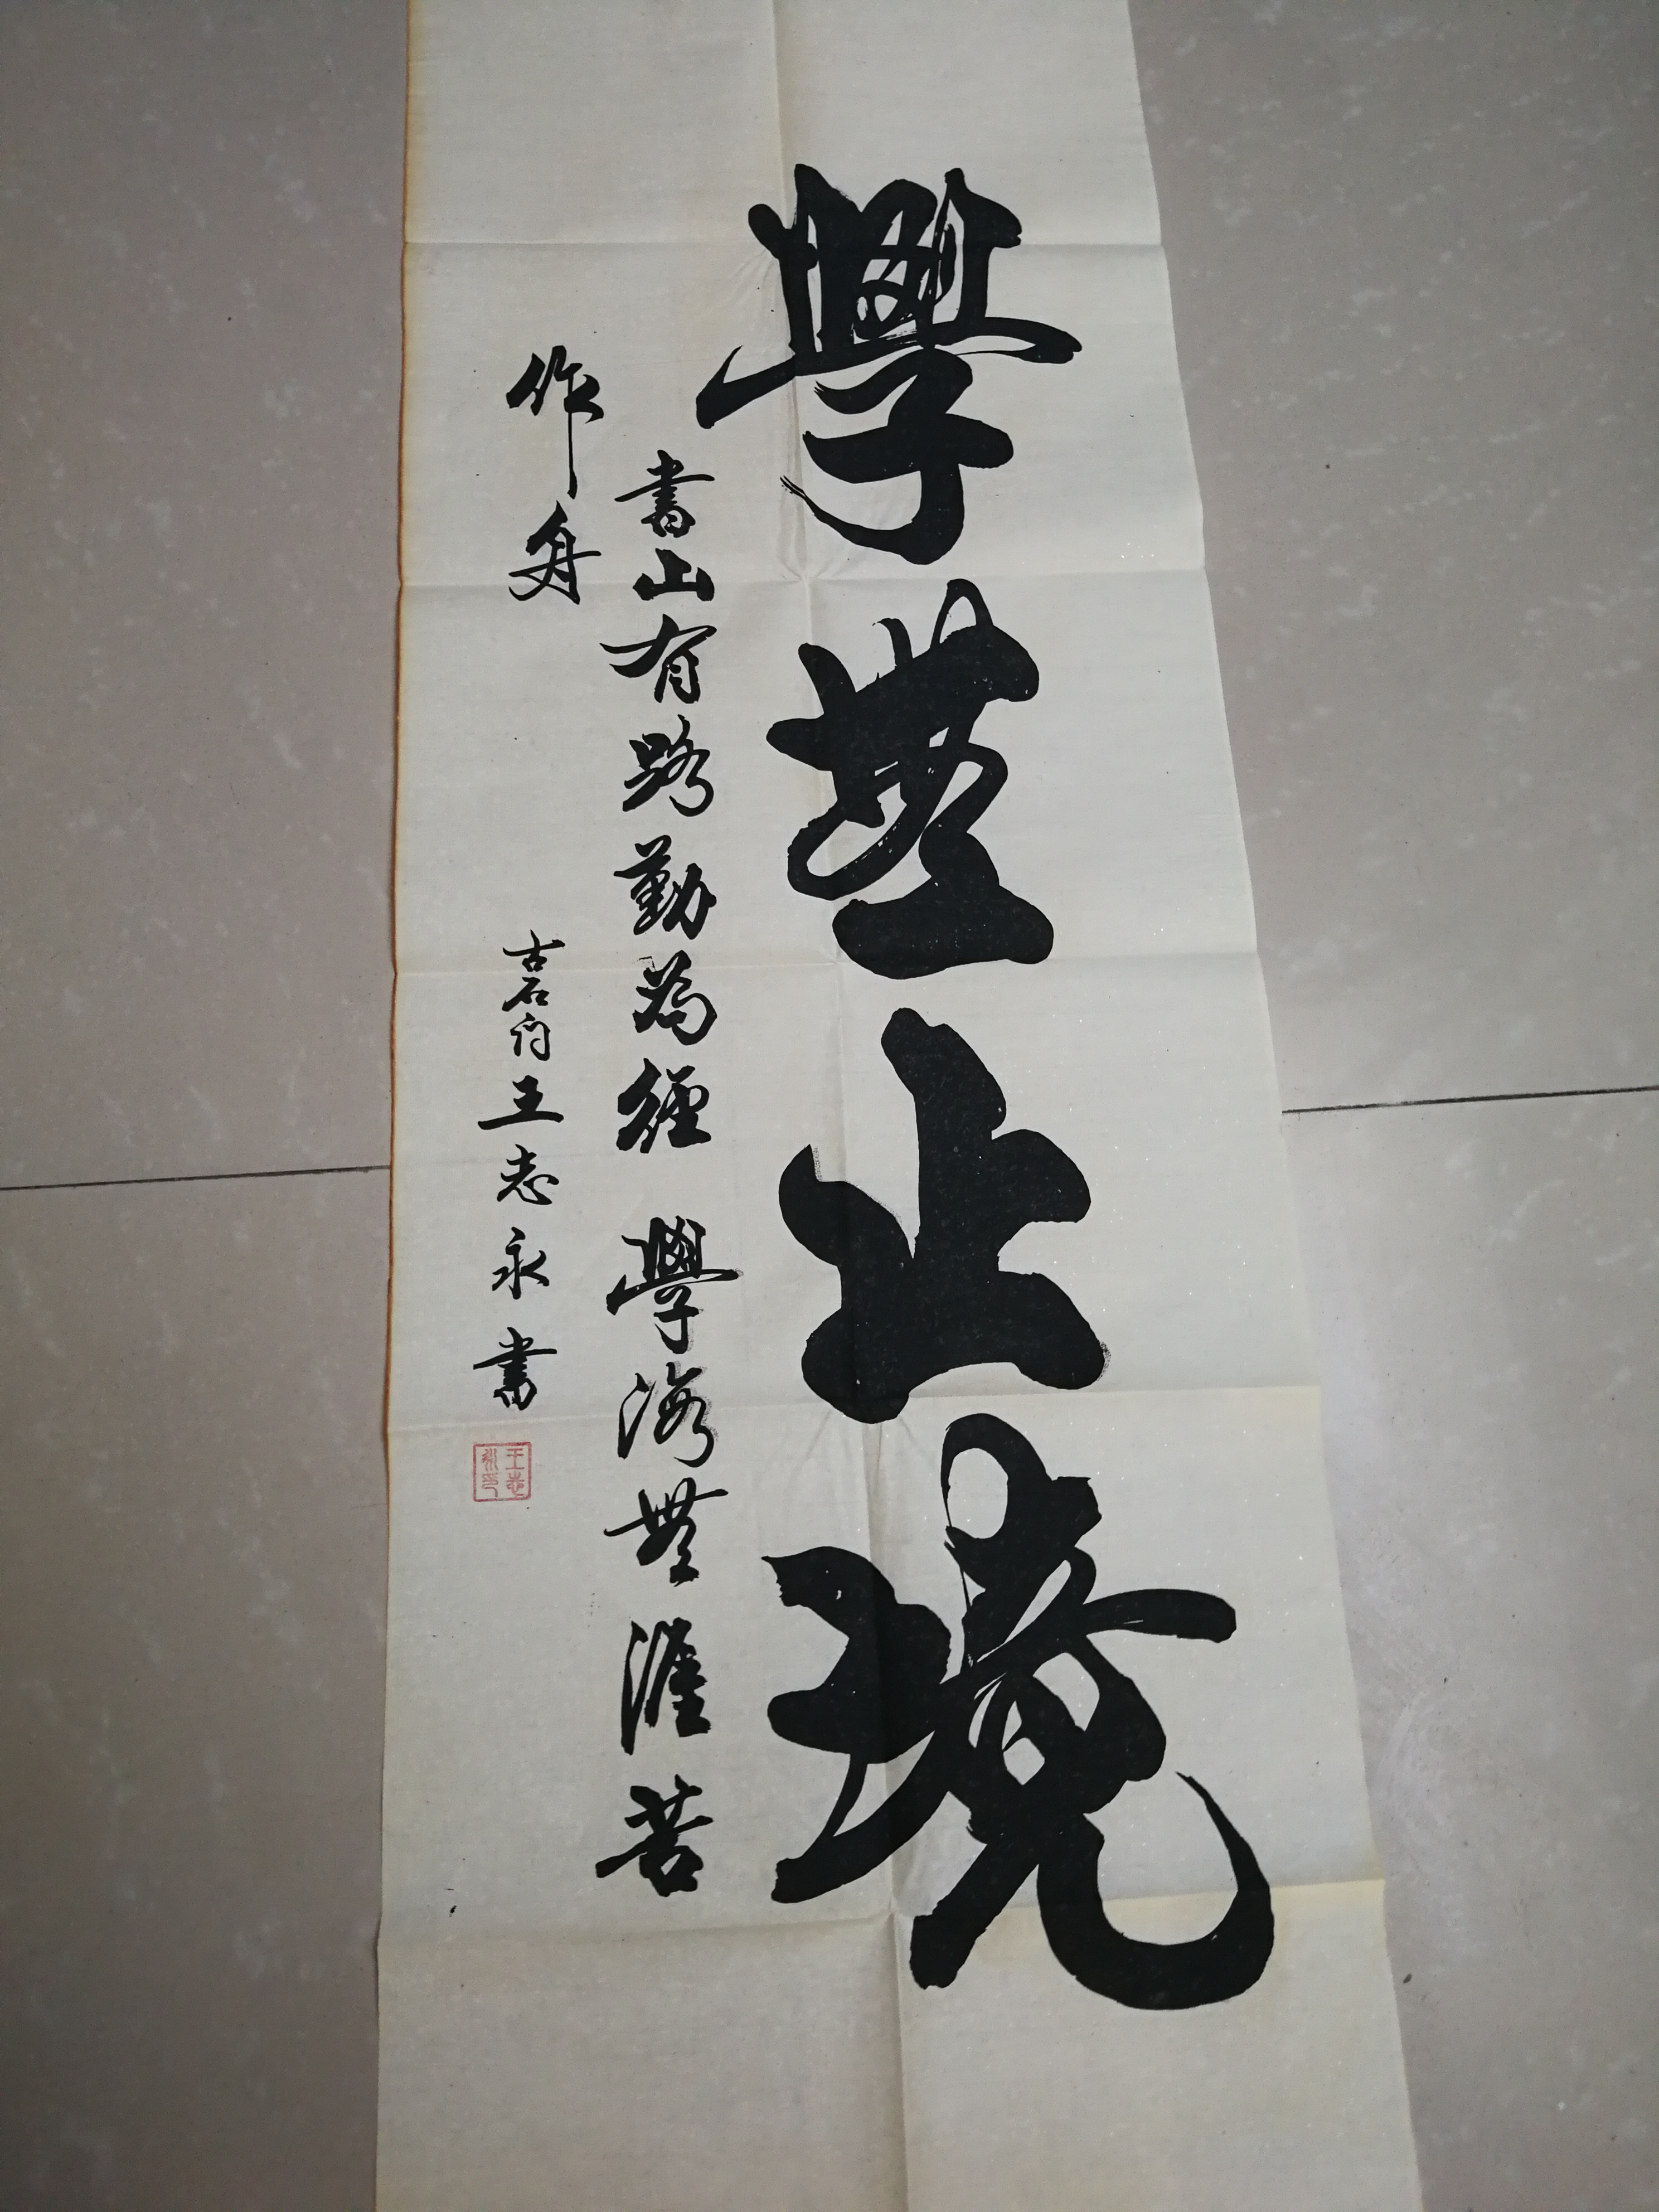 學無止境
書山有路勤為徑 學海無涯苦
作舟
古石 王志永書
王志永印